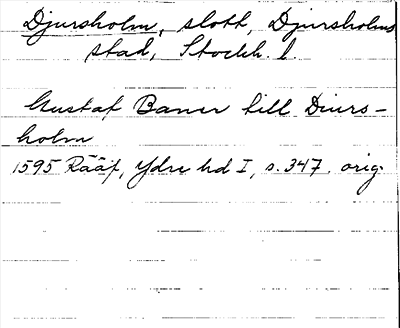 Djursholm, slott, Djursholms
stad, Stockh. l.
Gustaf Baner till Diurs-
holm
1595 Rääf, Ydre hd I, s. 347. orig.